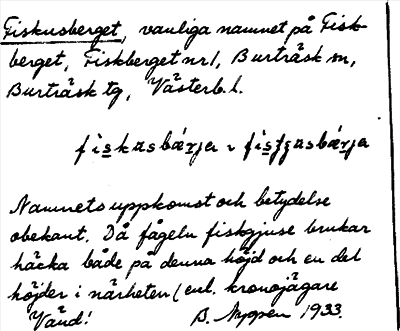 Fiskusberget, vanliga namnet på Fisk-
berget, Fiskberget nr 1, Burträsk sn,
Burträsk tg, Västerb. l.
fiskusbærja
Namnets uppkomst och betydelse
obekant. Då fågeln fiskgjuse brukar
häcka både på denna höjd och en del
höjder i närheten (enl. kronojägare
Vänd! B. 1933.